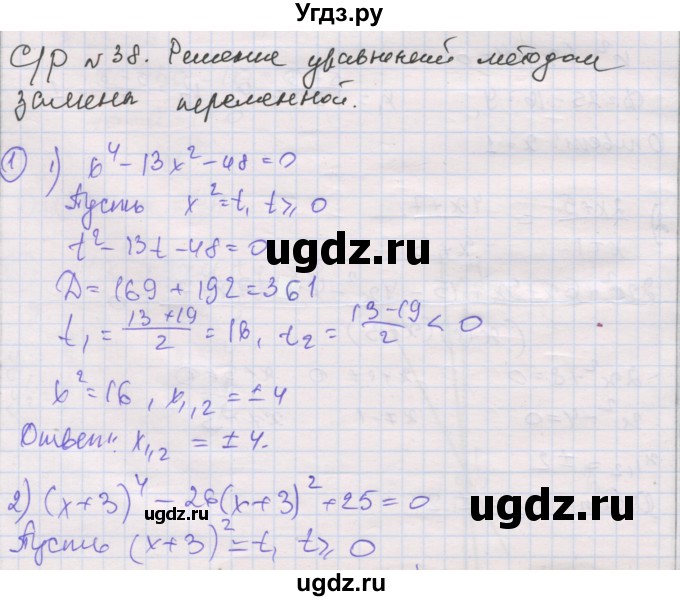 Угдз.ру
С/р №38. Решение уравнений методом
замены переменной.
1 1) x⁴-13x²-48=0
Пусть x²=t, t⩾0
t²-13t-48=0
ugdz.ru
ugdz.ru
Д=169+192=361
t₁=(13+19)/2=16, t₂=(13-19)/2<0
x²=16, x₁,₂=±4
Ответ: x₁,₂=±4.
ugdz.ru
2) (x+3)⁴-26(x+3)²+25=0
ugdz.ru
Пусть (x+3)²=t, t⩾0
ugdz.ru
ugdz.ru